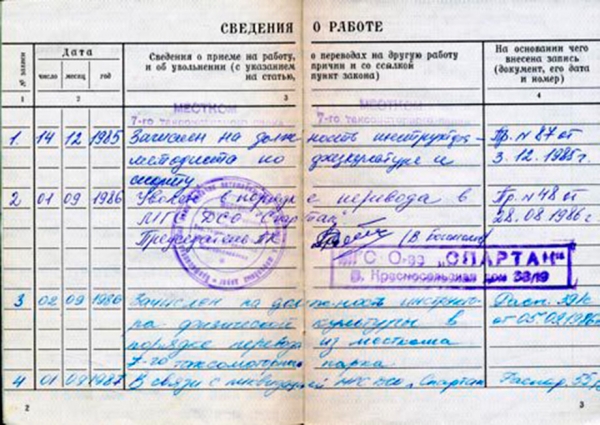 СВЕДЕНИЯ О РАБОТЕ
№ записи
Дата
число месяц год
Сведения о приеме на работу, о переводах на другую работу
и об увольнении (с указанием причин и со ссылкой
на статью, пункт закона)
На основании чего
внесена запись
(документ, его дата
и номер)
1 2 3 4
МЕСТКОМ МЕСТКОМ
7-го таксомоторного парка 7-го таксомоторного
1. 14 12 1985 Зачислен на должность инструктора- Пр. №87 от
методиста по физкультуре и 3.12.1985г.
спорту
2 01 09 1986 Уволен в порядке перевода в Пр. №48 от
МГС ДСО "Спартак" 28.08.1986г
Председатель ПК
МГС О-ва „СПАРТАК"
В. Красносельская дом 38/19
3 02 09 1986 Зачислен на должность инструкто- Расп.
ра физической культуры в от 05.09.1986
порядке перевода из месткома
7-го таксомоторного парка.
4 01 1987 В связи с ДСО „Спартак Распор.
2 3